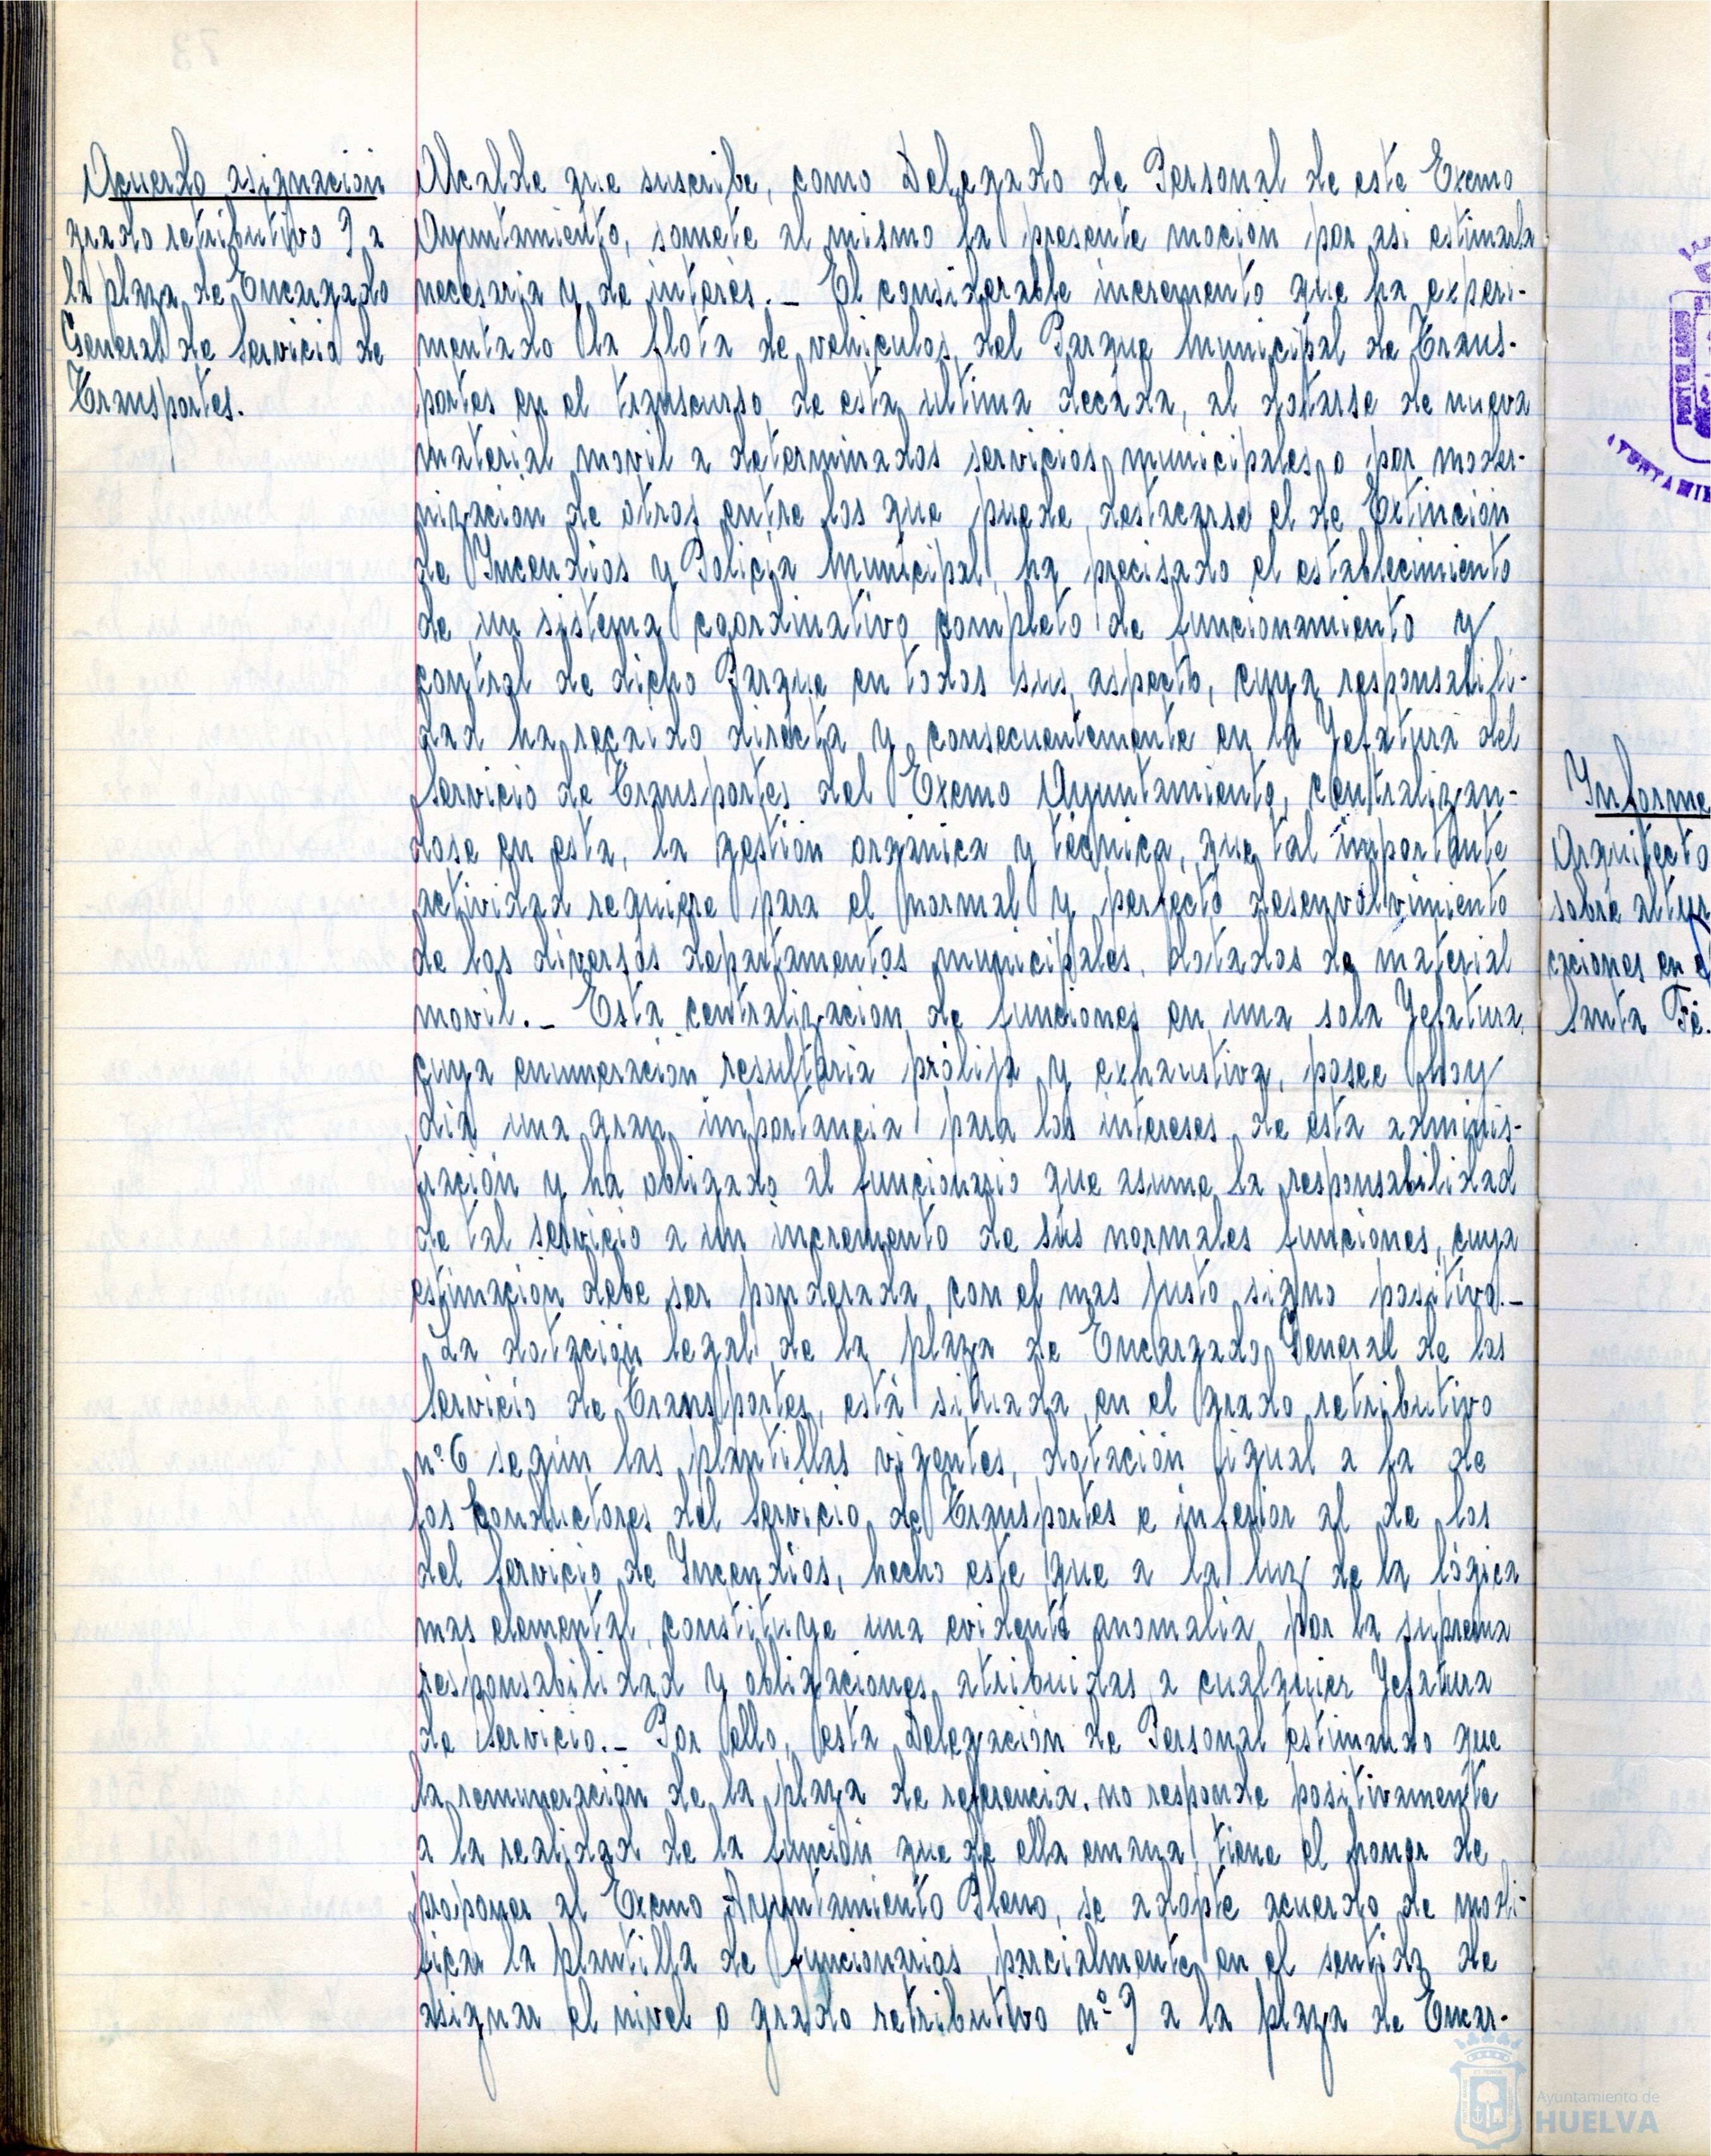 Acuerdo asignacion
grado retributivo 9 a
la plaza de Encargado
General de Servicio de
Transportes.
Alcalde que suscribe, como Delegado de Personal de este Excmo
Ayuntamiento, somete al mismo la presente mocion por asi estimarla
necesaria y de interés.- El considerable incremento que ha experi-
mentado la flota de vehiculos del Parque Municipal de Trans-
portes en el transcurso de esta ultima decada, al dotarse de nueva
material movil a determinados servicios municipales o por moder-
nizacion de otros entre los que puede destacarse el de Extinción
de Incendios y Policia Municipal, ha precisado el establecimiento
de un sistema coordinativo completo de funcionamiento y
control de dicho Parque en todos sus aspecto, cuya responsabili-
dad ha recaido directa y consecuentemente en la Jefatura del
Servicio de Transportes del Excmo Ayuntamiento, centralizan-
dose en esta, la gestión orgánica y técnica, que tal importante
actividad requiere para el normal y perfecto desenvolvimiento
de los diversos departamentos municipales, dotados de material
movil.- Esta centralización de funciones en una sola Jefatura,
cuya enumeración resultaria prólija y exhaustiva, posee hoy
dia una gran importancia para los intereses de esta adminis-
tración y ha obligado al funcionario que asume la responsabilidad
de tal servicio a un incremento de sus normales funciones, cuya
estimación debe ser ponderada con el mas justo signo positivo.-
La dotación legal de la plaza de Encargado General de los
Servicio de Transportes, está situada en el grado retributivo
nº 6 según las plantillas vigentes, dotación igual a la de
los Conductores del Servicio de Transportes e inferior al de los
del Servicio de Incendios, hecho este que a la luz de la lógica
mas elemental, constituye una evidente anomalia por la suprema
responsabilidad y obligaciones atribuidas a cualquier Jefatura
de Servicio.- Por ello, esta Delegación de Personal estimando que
la remuneración de la plaza de referencia, no responde positivamente
a la realidad de la función que de ella emana, tiene el honor de
proponer al Excmo Ayuntamiento Pleno, se adopte acuerdo de modi-
ficar la plantilla de funcionarios parcialmente en el sentido de
asignar el nivel o grado retributivo nº 9 a la plaza de Encar-
Informe
Arquitecto
sobre altur
caciones en
Santa Fé.
Ayuntamiento de
HUELVA